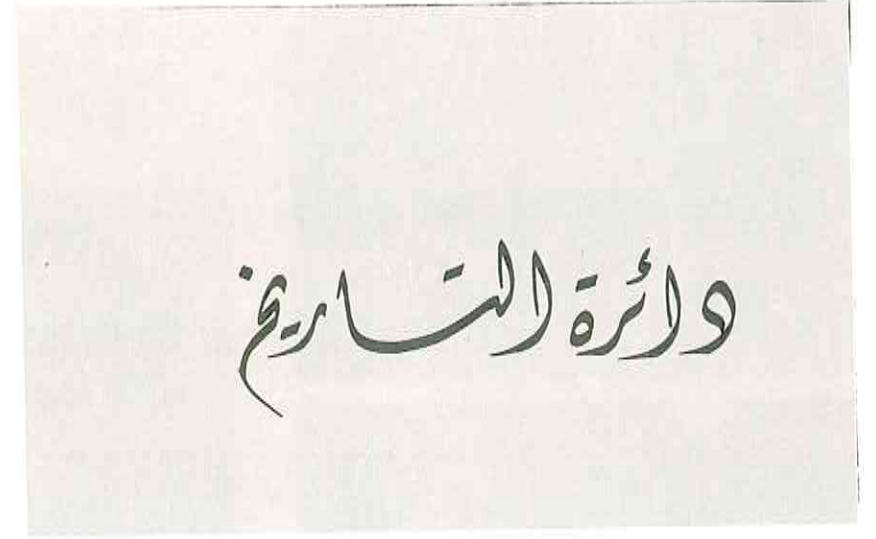 دائرة التاريخ